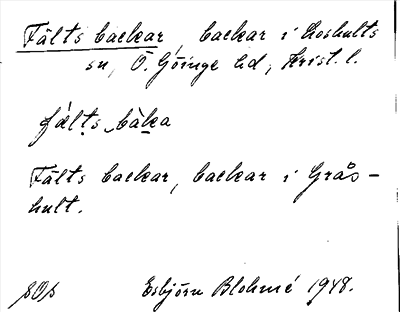 Fälts backar backar i Loshults
sn, Ö. Göinge hd, Krist. l.
fælts bàka
Fälts backar, backar i Grås-
hult.
Esbjörn Blohmé 1948.